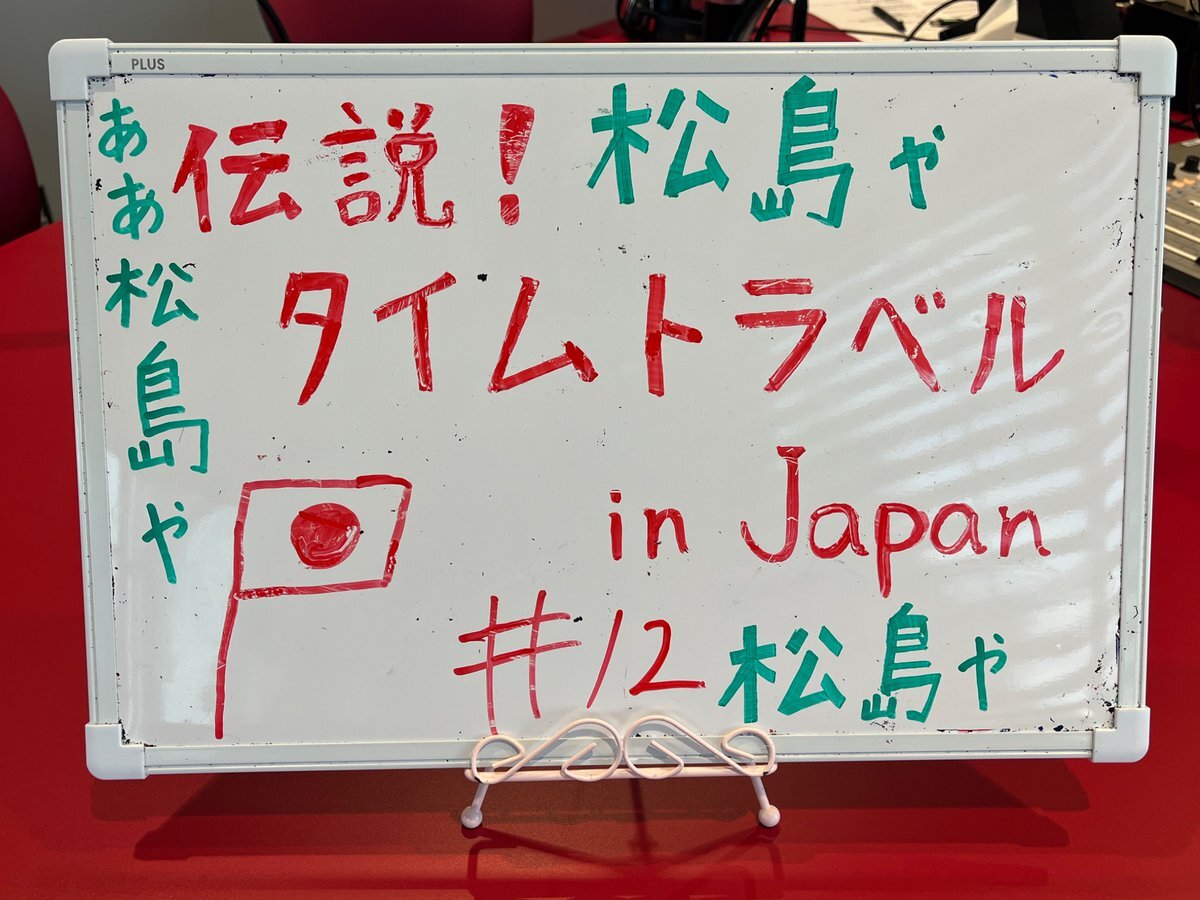 PLUS
ああ松島や
伝説！
松島や
タイムトラベル
in Japan
#12
松島や